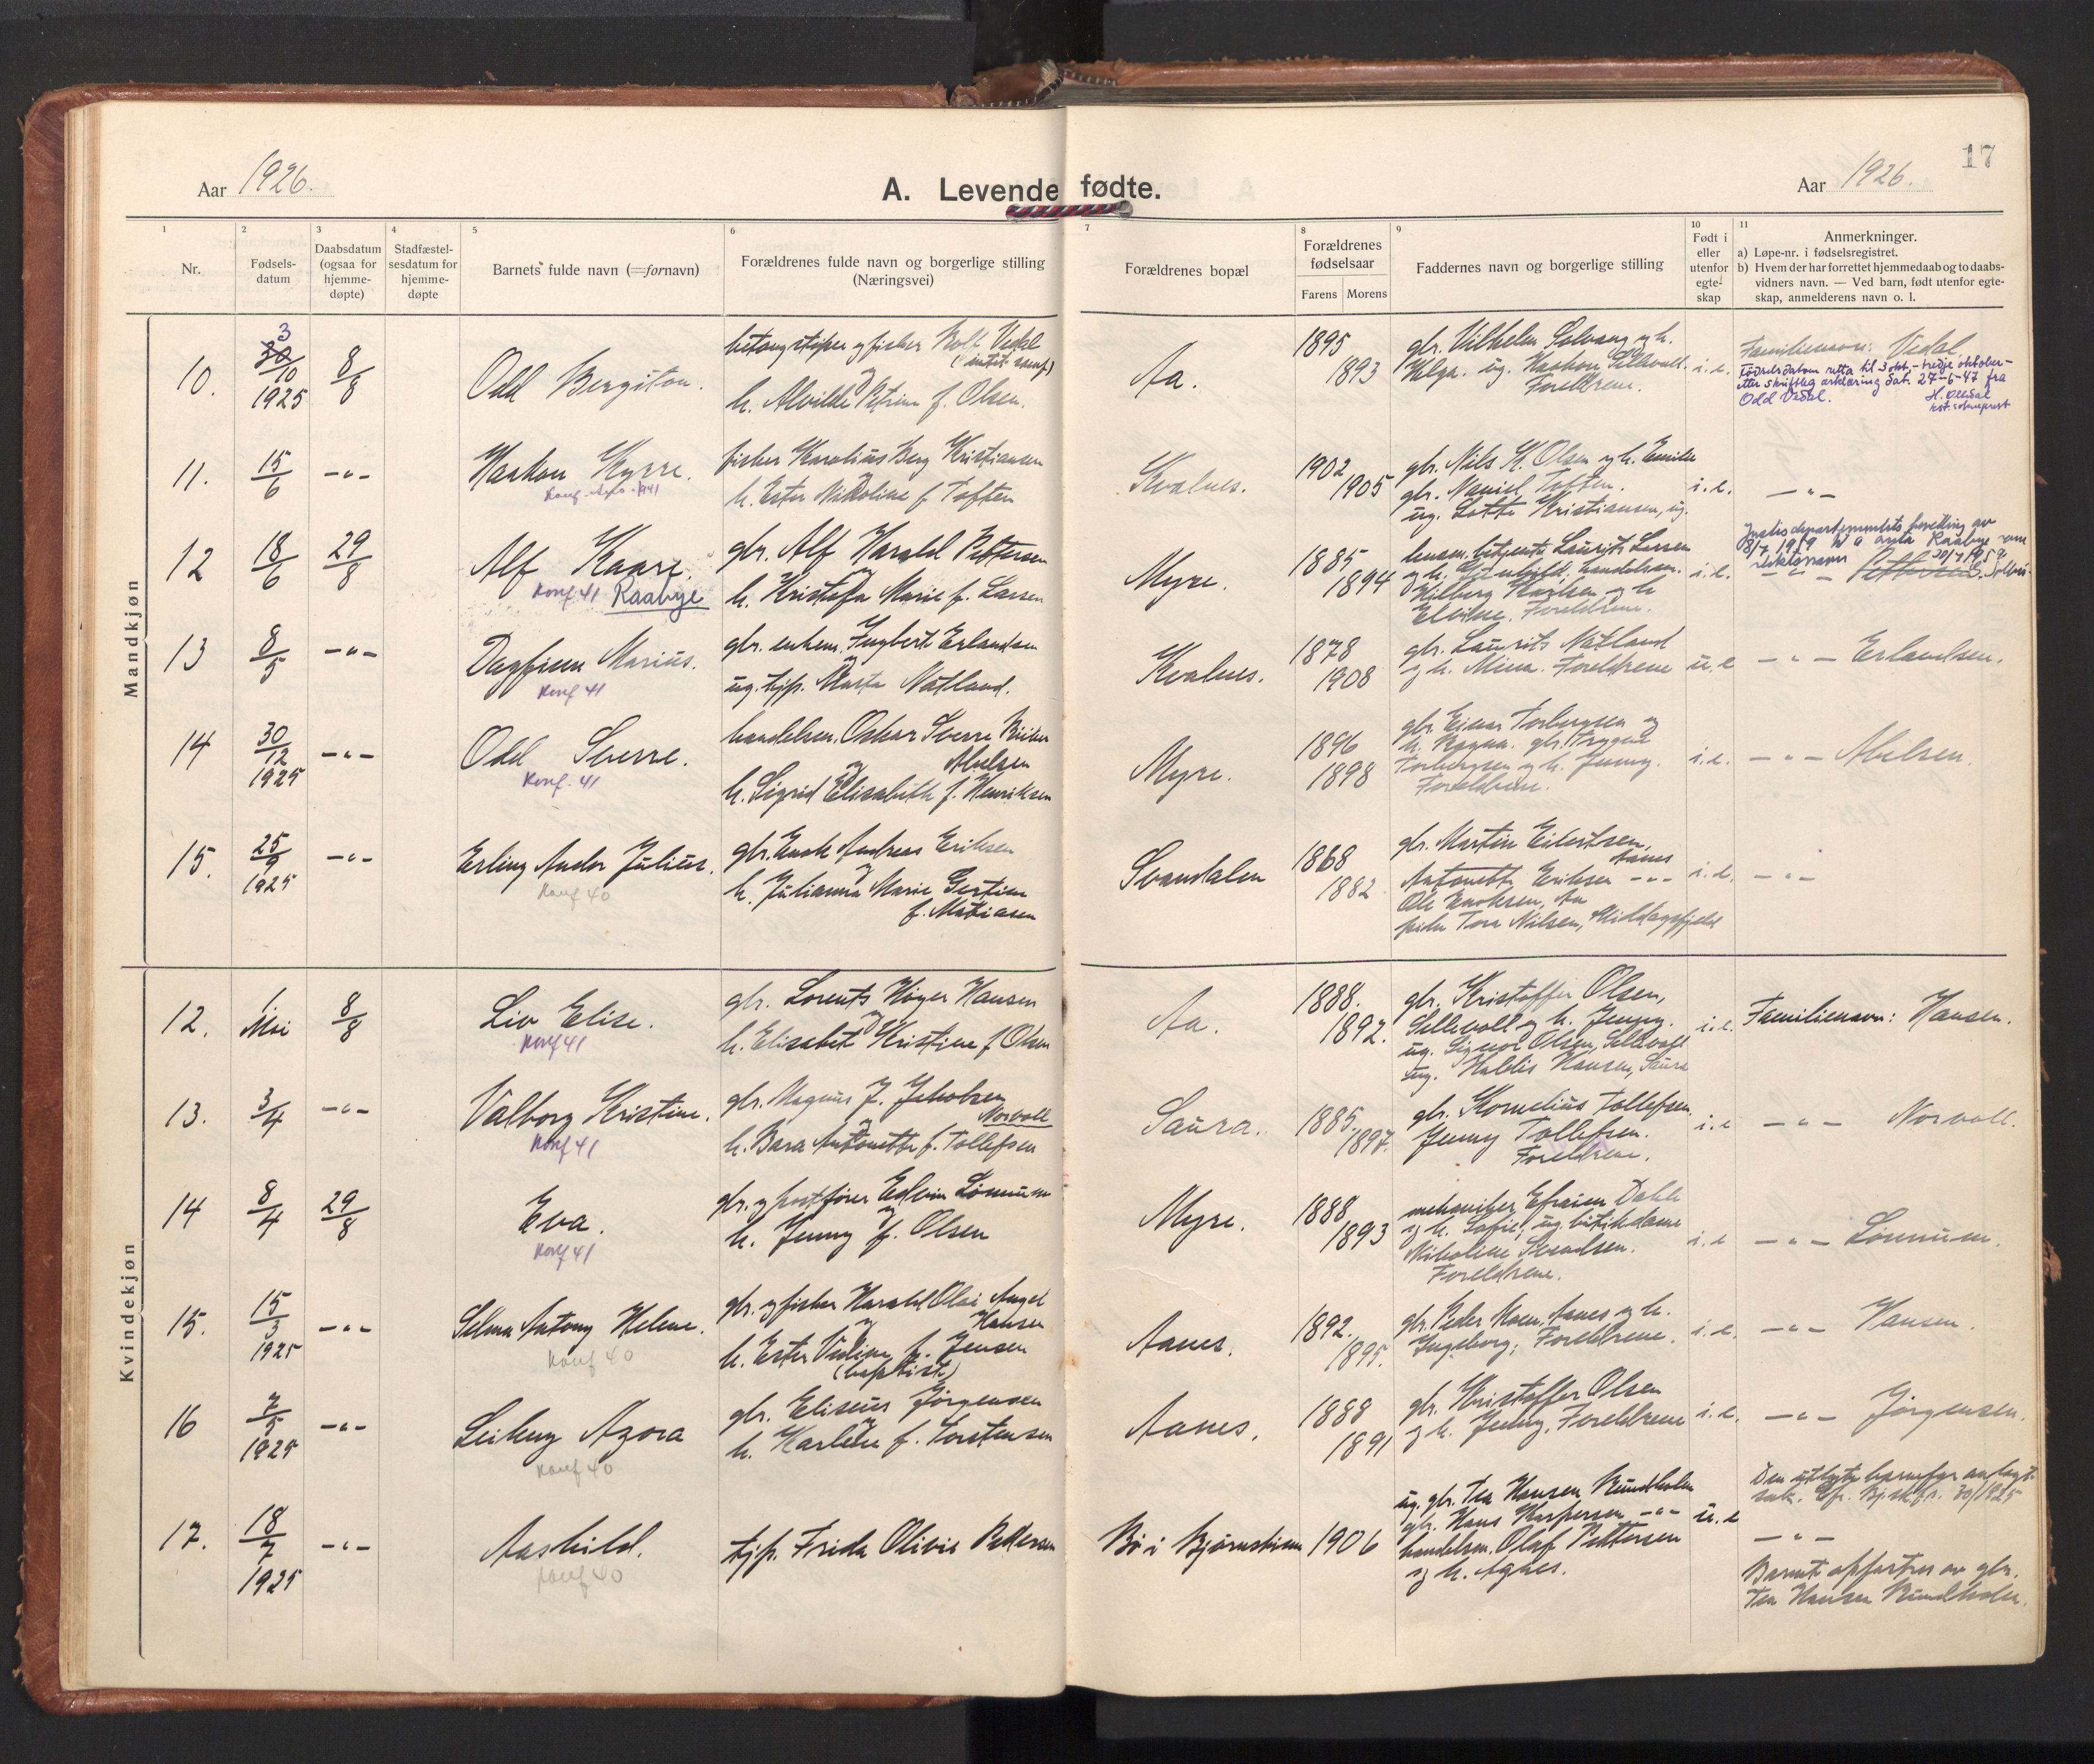 Aar 1926.
A. Levende fødte.
Aar 1926.
17
1
2
3
4
5
6
7
8
9
10
11
Nr.
Fødsels-
datum
Daabsdatum
(ogsaa for
hjemme-
døpte)
Stadfæstel-
sesdatum for
hjemme-
døpte
Barnets fulde navn (=fornavn)
Forældrenes fulde navn og borgerlige stilling
(Næringsvei)
Forældrenes bopæl
Forældrenes
fødselsaar
Farens Morens
Faddernes navn og borgerlige stilling
Født i
eller
utenfor
egte-
skap
Anmerkninger.
a) Løpe-nr. i fødselsregistret.
b) Hvem der har forrettet hjemmedaab og to daabs-
vidners navn. — Ved barn, født utenfor egte-
skap, anmelderens navn o. l.
Mandkjøn
10.
3
30/10
1925
8/8
Odd Bergiton.
og fisker Rolf Vedal
og
h. Alvilde Petrine f. Olsen.
Aa.
1895
1893
gbr. Vilhelm Solvang og h.
Helga. ug. Haakon
Foreldrene.
i.e.
Familienavn: Vedal.
Fødselsdatoen retta til 3 okt. - tredje oktober -
etter skriftleg erklæring dat. 27-6-47 frå
Odd Vedal.
11.
15/6
-"-
Haakon Kyrre.
fisker Karolius Berg Kristiansen
h. Ester Nikoline f. Toften
Kvalnes.
1902
1905
gbr. Nils K. Olsen og h. Emilie
gbr. Daniel Toften.
ug. Lotte Kristiansen, ug.
i.e.
-"-
12
18/6
29/8
Alf Kaare.
Konf 41 Raabye
gbr. Alf Harald Pettersen
og
h. Kristofa Marie f. Larsen
Myre.
1885
1894
Laurits Larsen
og h.
Hilberg Karlsen og h
Elvine. Foreldrene.
i.e.
Justisdepartementets bevilling av
8/7 1959 til å anta Raabye som
slektsnavn 20/7 1959
-"- Pettersen
13
8/5
-"-
Dagfinn Marius.
Konf 41
gbr. enkem. Ingbert Erlandsen
og
ug. tjp. Marta Natland.
Kvalnes.
1878
1908
gbr. Laurits Natland
og h. Mina. Foreldrene
u.e
-"- Erlandsen.
14
30/12
1925
-"-
Odd Sverre.
Konf. 41
handelsm. Oskar Sverre
Abelsen
og
h. Sigrid Elisabeth f. Henriksen
Myre.
1896
1898
gbr. Einar Torbergsen og
h. Ragna. gbr. Trygve
Torbergsen og h. Jenny.
Foreldrene.
i.e.
-"- Abelsen.
15.
25/9
1925
-"-
Erling Andor Julius.
Konf 40
gbr. Enok Andreas Eriksen
og
h. Julianna Marie Gertine
f. Matiasen
Svandalen
1868
1882
gbr. Martin Eilertsen,
Aanes
Antonette Eriksen -"-
Ole Enoksen, Aa
pike Tora Nilsen, Middagsfjeld
i.e.
-"-
Kvindekjøn
12.
1
Mai
8/8
Liv Elise.
Konf 41
gbr. Lorents Høyer Hansen
og
h. Elisabet Kristine f. Olsen
Aa.
1888.
1892.
gbr. Kristoffer Olsen,
Sellevoll og h. Jenny.
ug. Signor Olsen, Sellevoll
ug. Haldis Hansen, Saura
i.e.
Familienavn: Hansen.
13.
3/4
-"-
Valborg Kristine.
Konf 41
gbr. Magnus J. Jakobsen
Norvoll
og
h. Bara Antonette f. Tollefsen
Saura.
1885.
1897.
gbr. Kornelius Tollefsen.
Jenny Tollefsen.
Foreldrene.
i.e
-"- Norvoll.
14
8/4
29/8
Eva.
Konf 41
gbr. og postfører Edvin Lønnum
og
h. Jenny f. Olsen
Myre.
1888
1893
mekaniker Efraim Dahl
og h. Sofie, ug. butikdame
Nikoline Sivertsen.
Foreldrene.
i.e
-"- Lønnum.
15.
15/3
1925
-"-
Selma Antony Helene.
Konf 40
gbr. og fisker Harald Olai Angel
Hansen
og
h. Ester f. Jensen
(baptist)
Aanes.
1892.
1895.
gbr. Peder Moen, Aanes og h.
Ingeborg; Foreldrene.
i.e.
-"- Hansen.
16
7/5
1925
-"-
Leikny Agora
Konf 40
gbr. Eliseus Jørgensen
og
h. f. Torstensen
Aanes.
1888
1891
gbr. Kristoffer Olsen
og h. Jenny. Foreldrene
i.e.
-"- Jørgensen.
17.
18/7
1925
-"-
Aashild.
Konf 40
tjp. Frida Olivie Pedersen
Bø i Bjørnskinn
1906
ug. gbr. Tea Hansen Rundholen
gbr. Hans Kaspersen -"-
handelsm. Olaf Pettersen
og h. Agnes.
u.e
Den utlagte barnefar anlagt
sak. Cfr. Bj.sk. fr. 20/1925
-"-
Barnet opfostres av gbr.
Tea Hansen Rundholen.